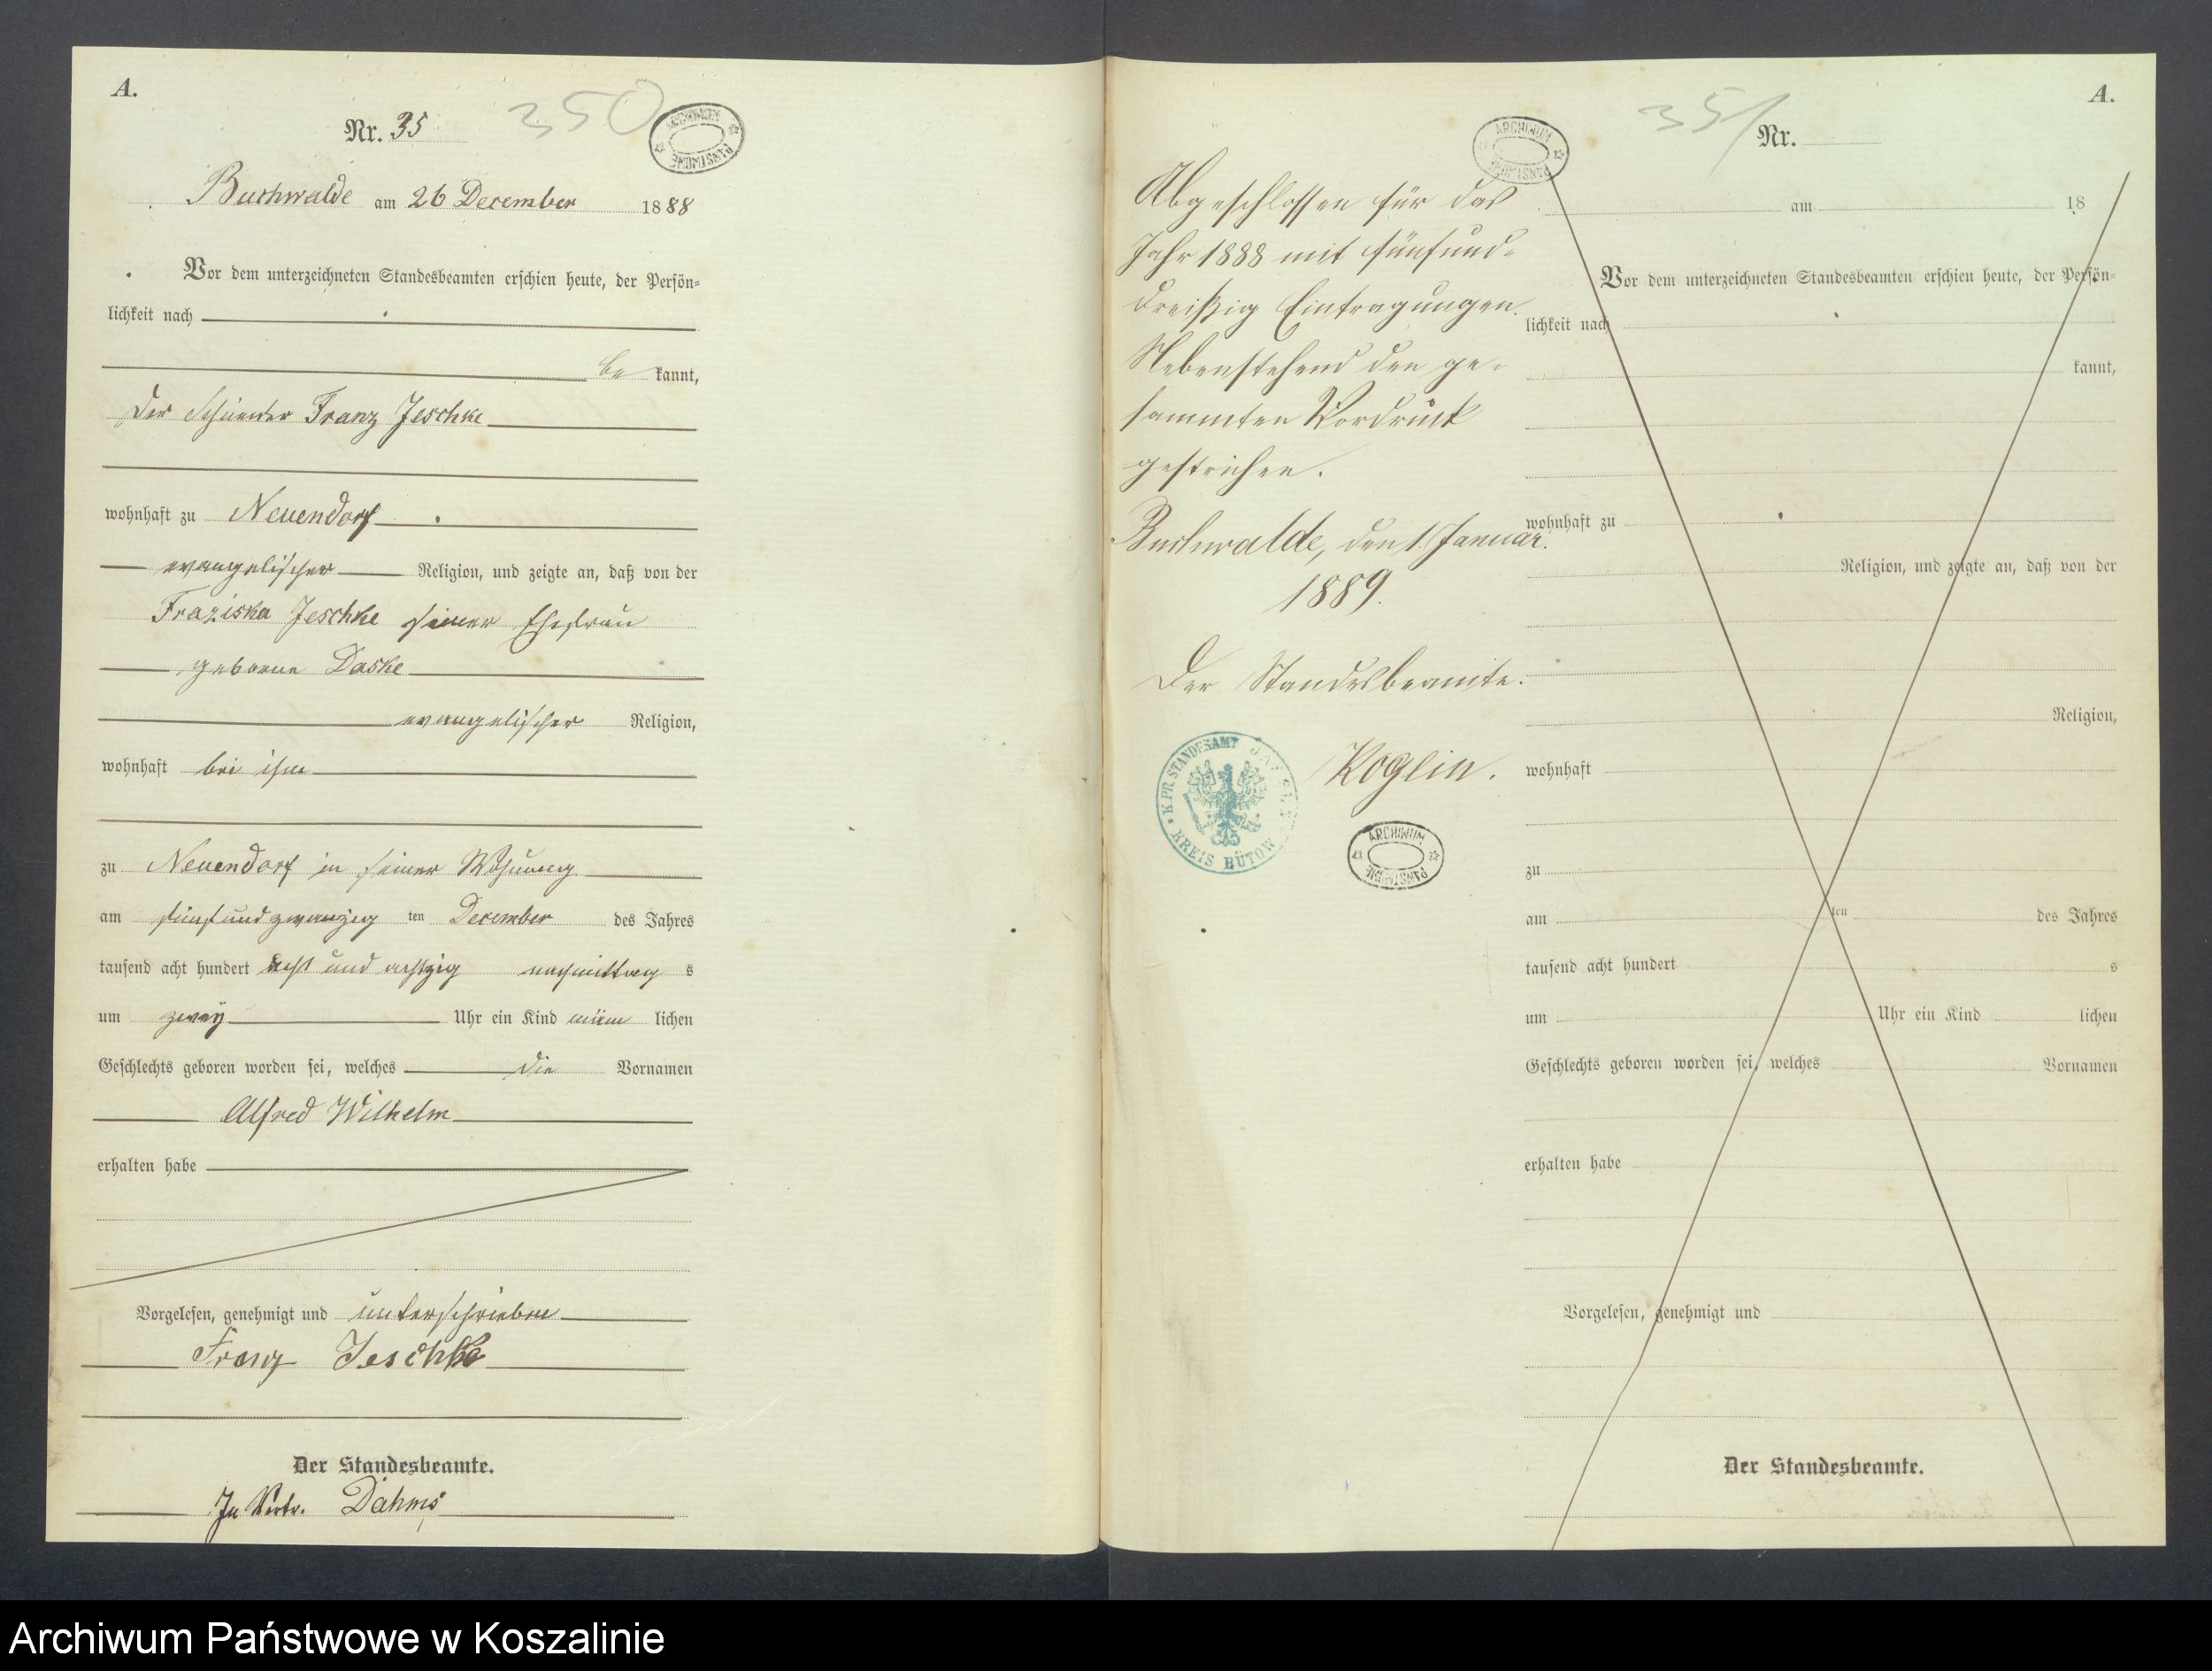 A.
Nr. 35
350
ARCHIWUM PAŃSTWOWE
Buchwalde am 26 December 1888
Vor dem unterzeichneten Standesbeamten erschien heute, der Persön=
lichkeit nach
be kannt,
der Franz Jeschke
wohnhaft zu Neuendorf
evangelischer Religion, und zeigte an, daß von der
Fraziska Jeschke seiner Ehefrau
geborene Daske
evangelischer Religion,
wohnhaft bei ihm
zu Neuendorf in seiner Wohnung
am fünf und zwanzig ten December des Jahres
tausend acht hundert acht und achtzig nachmittag s
um zwey Uhr ein Kind männ lichen
Geschlechts geboren worden sei, welches die Vornamen
Alfred Wilhelm
erhalten habe
Vorgelesen, genehmigt und unterschrieben
Franz Jeschke
Der Standesbeamte.
In Vertr. Dahms
A.
351
Nr.
ARCHIWUM PAŃSTWOWE
Abgeschlossen für das
Jahr 1888 mit fünfund=
dreißig Eintragungen.
Nebenstehend den ge=
sammten Vordruck
gestrichen.
Buchwalde, den 1. Januar.
1889.
Der Standesbeamte.
Koglin.
K. PR. STANDESAMT
KREIS BÜTOW
ARCHIWUM PAŃSTWOWE
am 18
Vor dem unterzeichneten Standesbeamten erschien heute, der Persön=
lichkeit nach
kannt,
wohnhaft zu
Religion, und zeigte an, daß von der
Religion,
wohnhaft
zu
am ten des Jahres
tausend acht hundert s
um Uhr ein Kind lichen
Geschlechts geboren worden sei, welches Vornamen
erhalten habe
Vorgelesen, genehmigt und
Der Standesbeamte.
Archiwum Państwowe w Koszalinie